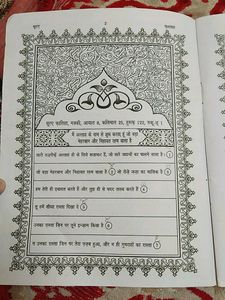 सूरए फ़ातिहा, मक्की, आयात 8, कलिमात 25, हुरूफ़ 123, रुकू 1
मैं अल्लाह के नाम से शुरू करता हूं जो बड़ा
मेहरबान और निहायत रहम वाला है
सारी तअरीफ़ें अल्लाह ही के लिये सज़ावार हैं, जो सारे जहानों का पालने वाला है 1
जो बड़ा मेहरबान और निहायत रहम वाला है 2 जो रोज़े जज़ा का मालिक है 3
हम तेरी ही इबादत करते हैं और तुझ ही से मदद तलब करते हैं 4
तू हमें सीधा रस्ता दिखा 5
उनका रस्ता जिन पर तूने इनआम किया है 6
न उनका रस्ता जिन पर तेरा ग़ज़ब हुआ, और न ही गुमराहों का रस्ता 7